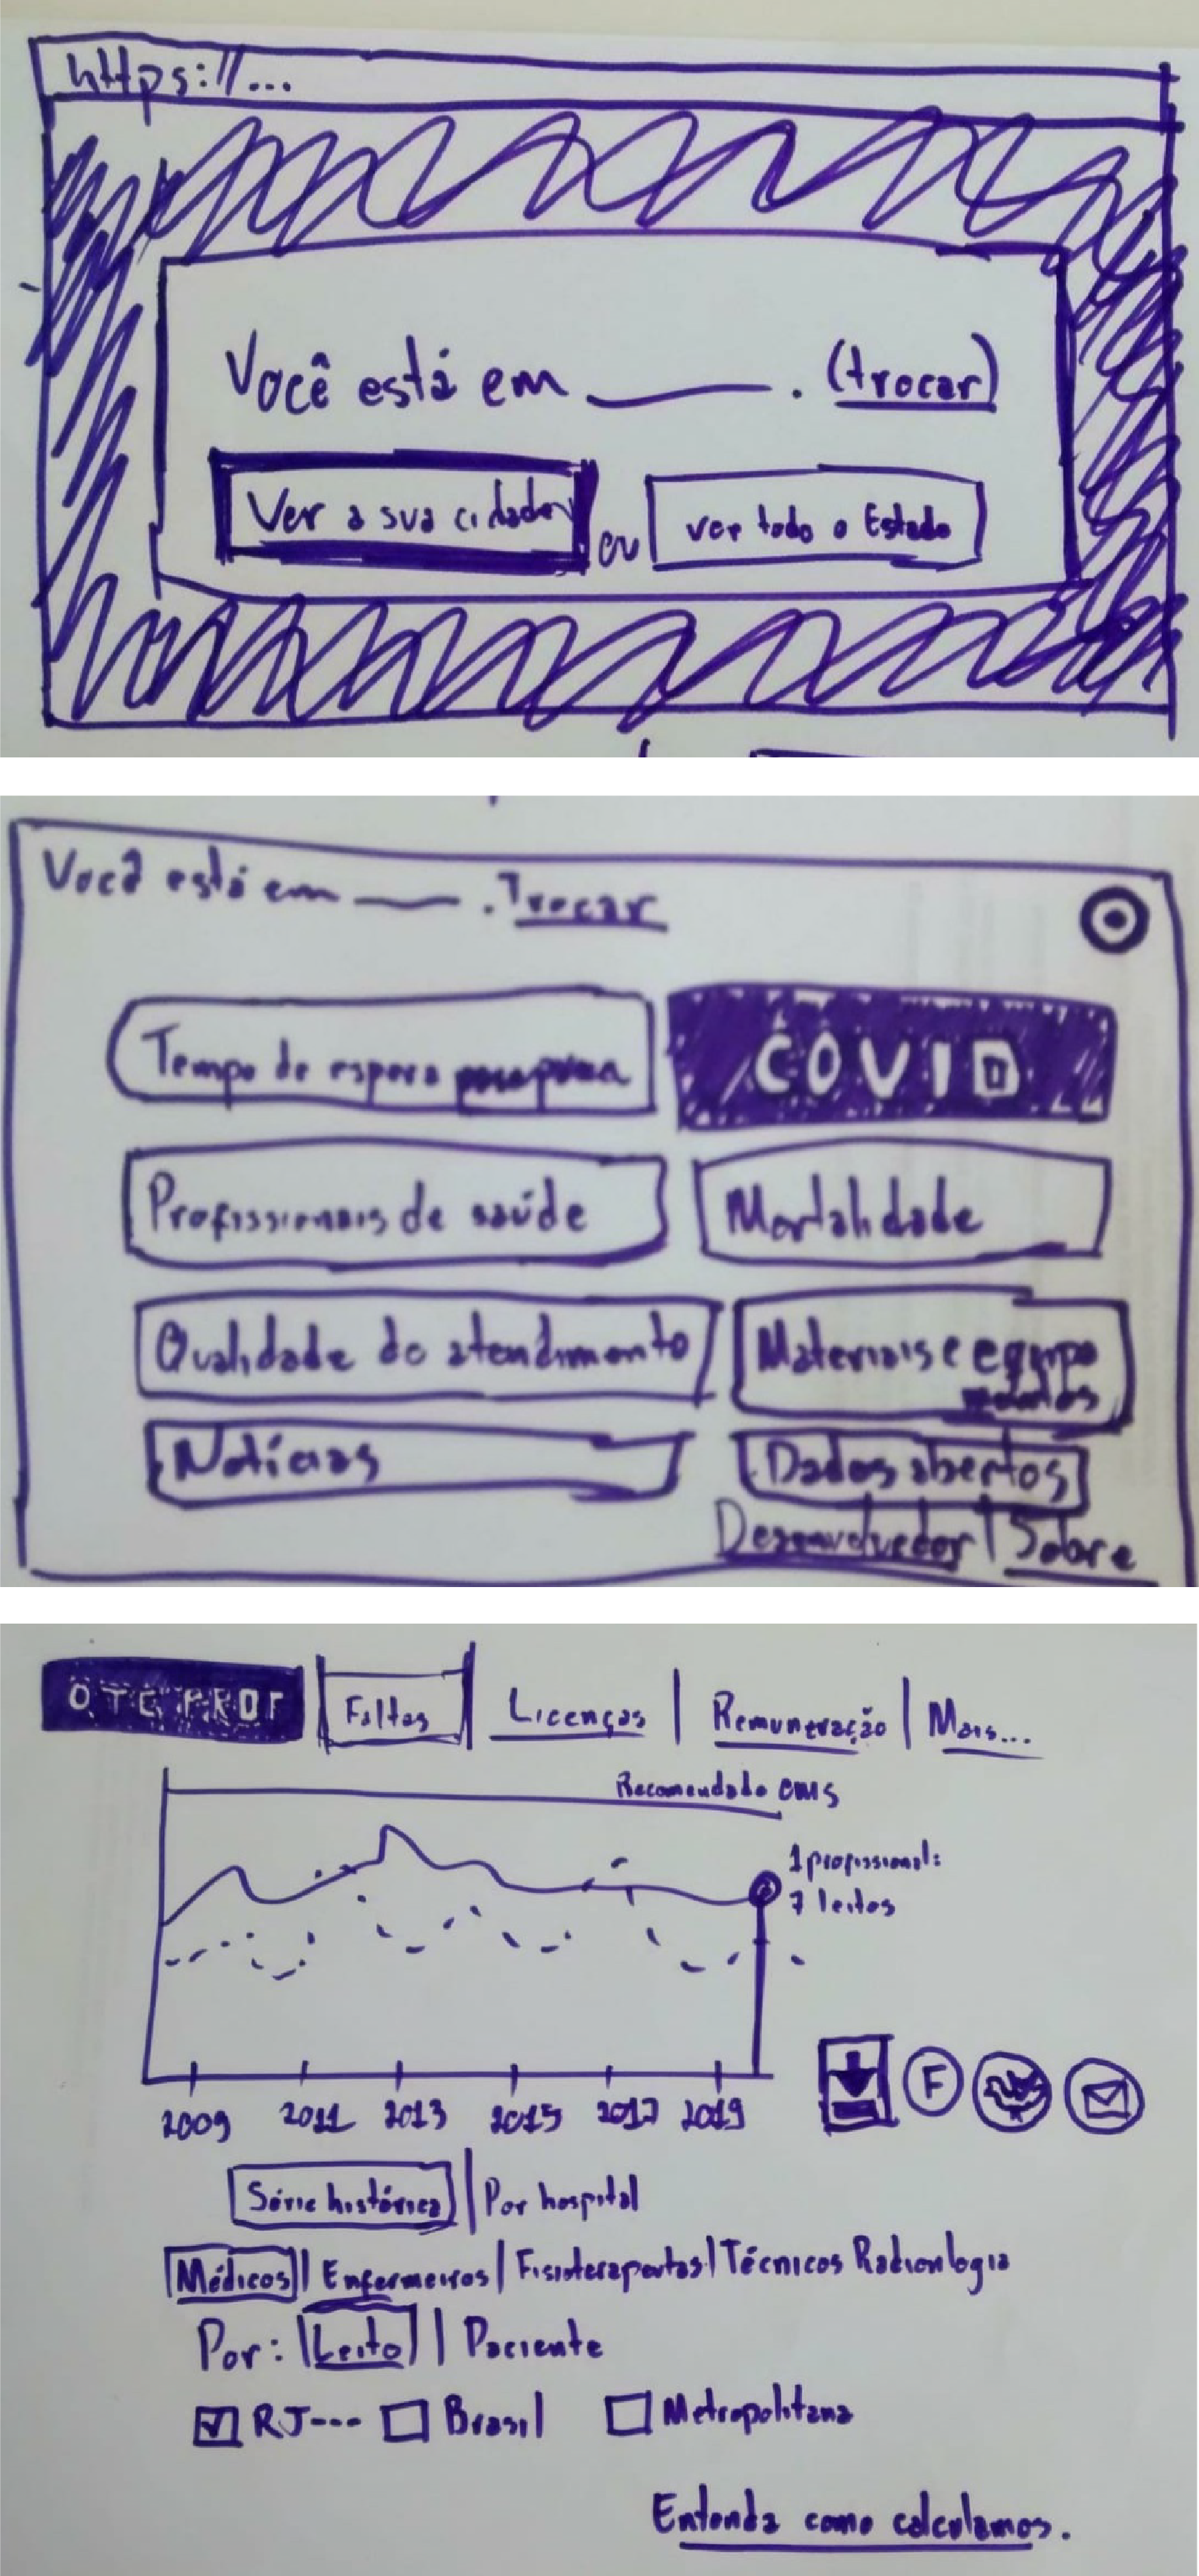 https://...
Você está em ______. (trocar)
Ver a sua cidade ou ver todo o Estado
Você está em ____. Trocar
Tempo de espera
COVID
Profissionais de saúde
Mortalidade
Qualidade do atendimento
Materiais e equipamentos
Notícias
Dados abertos
Desenvolvedor | Sobre
QTE PROF
Faltas
Licenças | Remuneração | Mais...
Recomendado OMS
1 profissional:
7 leitos
2009 2011 2013 2015 2017 2019
F
Série histórica | Por hospital
Médicos | Enfermeiros | Fisioterapeutas | Técnicos Radiologia
Por: Leito | Paciente
RJ--- Brasil Metropolitana
Entenda como calculamos.